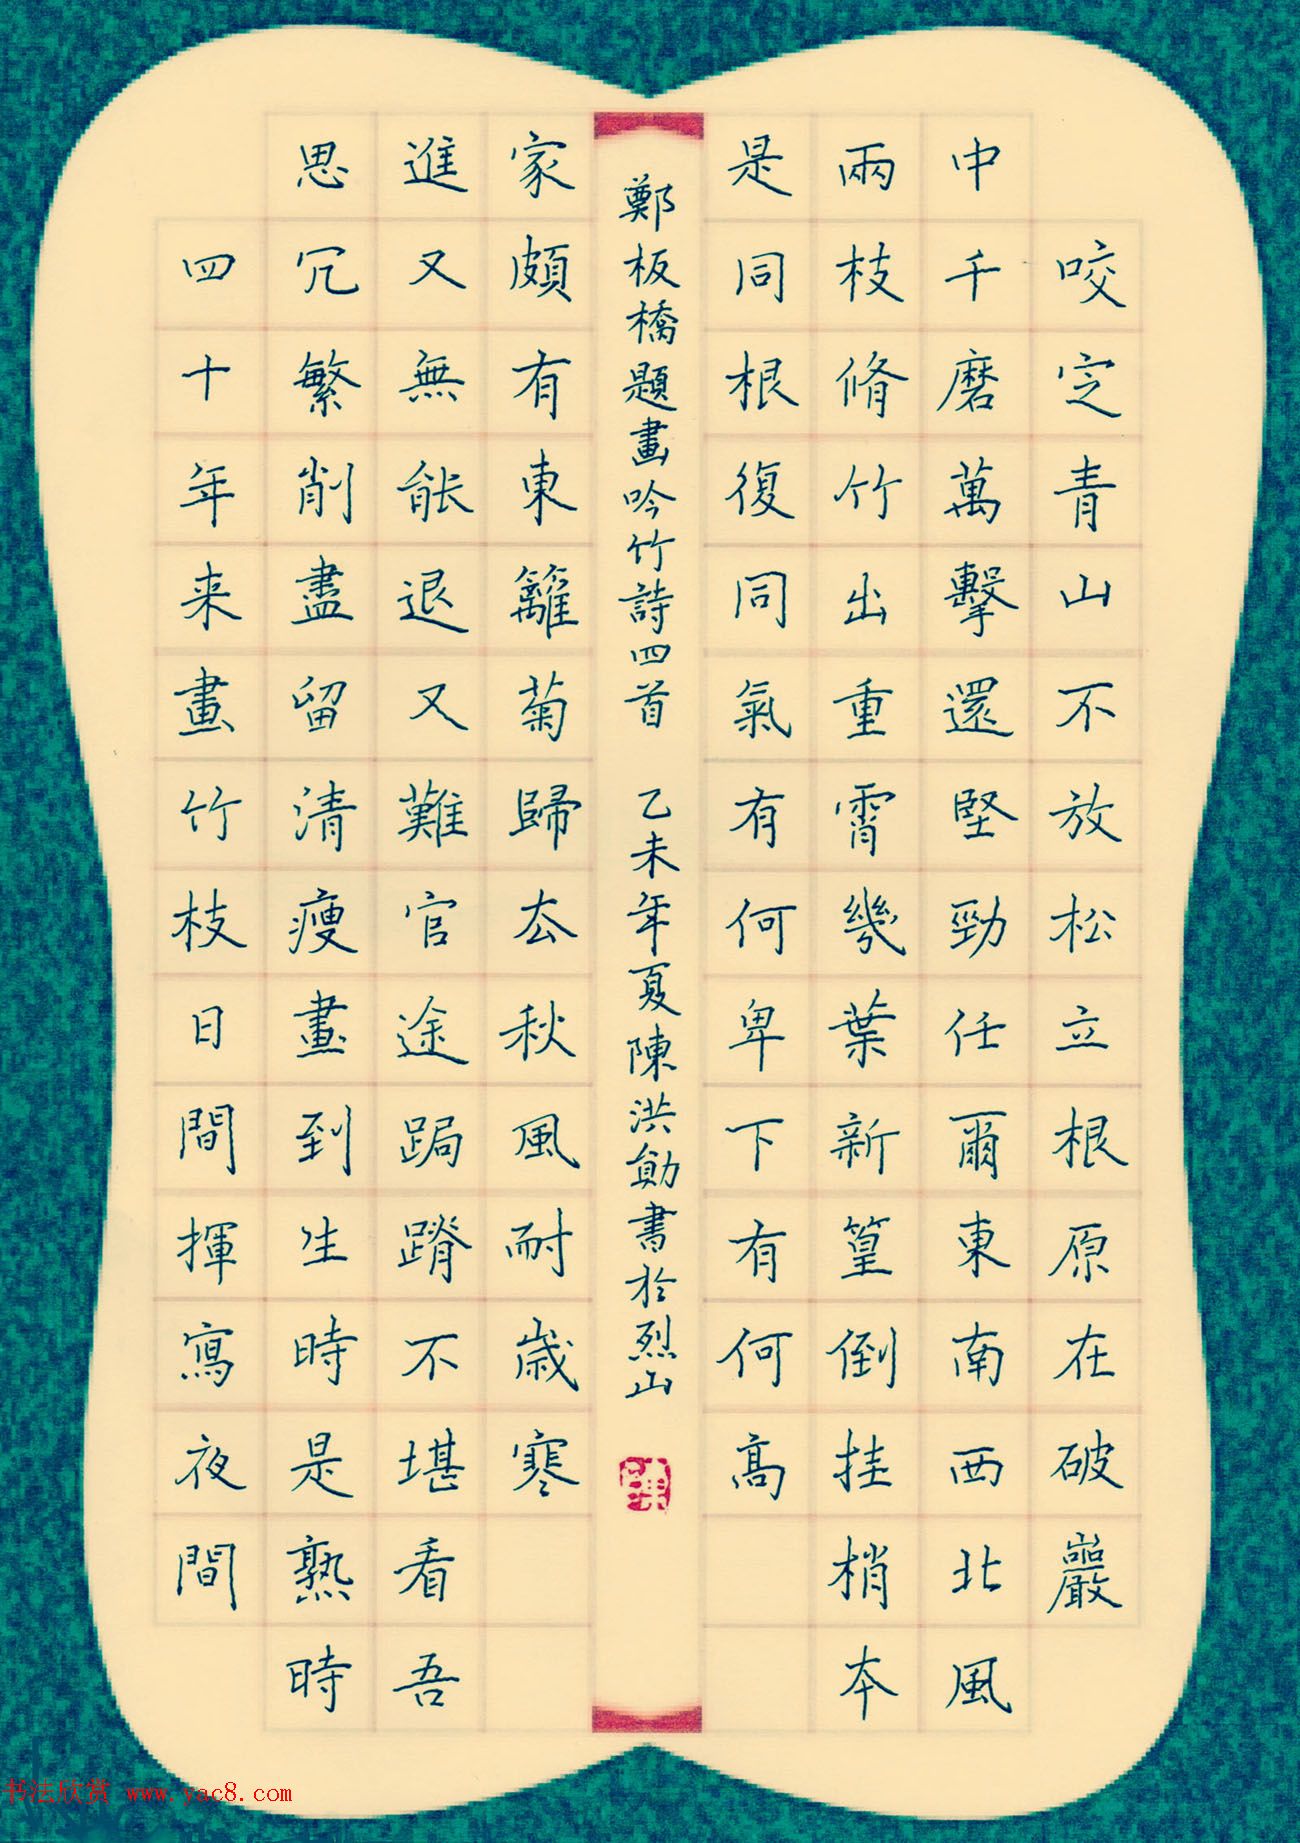 咬定青山不放松立根原在破巖
中千磨萬擊還堅勁任爾東南西北風
兩枝脩竹出重霄幾葉新篁倒挂梢本
是同根復同氣有何卑下有何高
四十年来畫竹枝日間揮寫夜間
思冗繁削盡留清瘦畫到生時是熟時
進又無能退又難官途跼蹐不堪看吾
家頗有東籬菊歸去秋風耐歲寒
鄭板橋題畫吟竹詩四首 乙未年夏陳洪勛書於烈山
书法欣赏 www.yac8.com